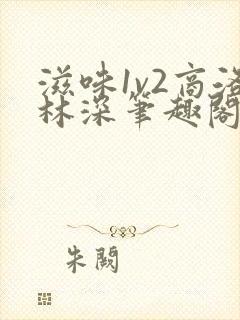 滋味1v2高洛
林深笔趣阁
朱阙